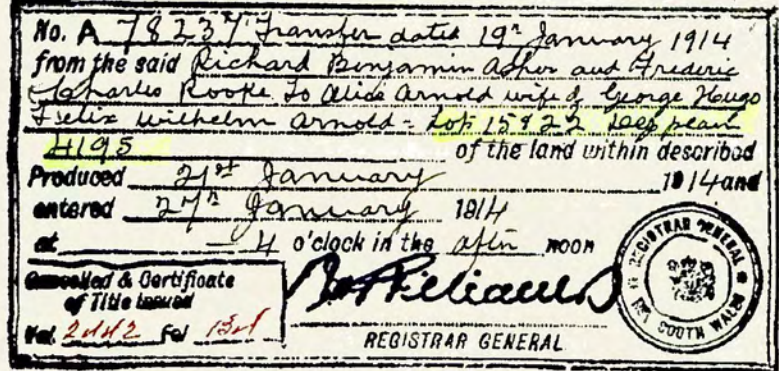 No. A 78237 Transfer dated 19th January 1914
from the said Richard Benjamin Asher and Frederic
Charles Rooke To Alice Arnold wife of George Hugo
Felix Wilhelm Arnold = Lots 15 & 22 Dep plan
4195 of the land within described
Produced 21st January 1914 and
entered 27th January 1914
at 4 o'clock in the after noon
Cancelled & Certificate
of Title Issued
Vol Fol
REGISTRAR GENERAL
REGISTRAR GENERAL
SOUTH WALES